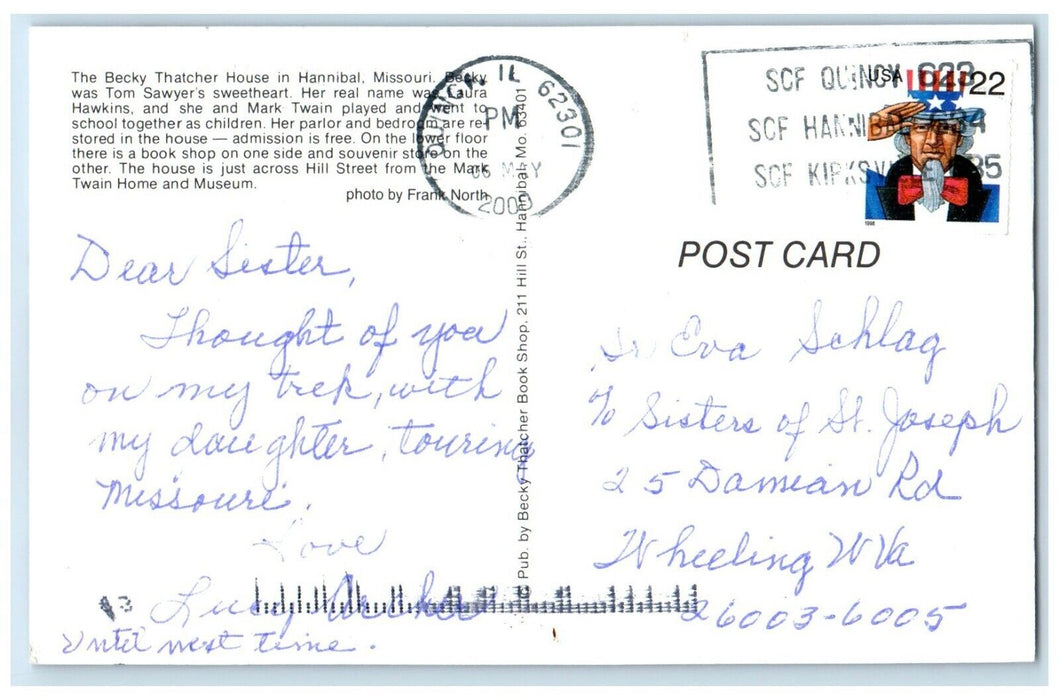 The Becky Thatcher House in Hannibal, Missouri. Becky
was Tom Sawyer's sweetheart. Her real name was Laura
Hawkins, and she and Mark Twain played and went to
school together as children. Her parlor and bedroom are re-
stored in the house — admission is free. On the lower floor
there is a book shop on one side and souvenir store on the
other. The house is just across Hill Street from the Mark
Twain Home and Museum.
photo by Frank North
Dear Sister,
Thought of you
on my trek, with
my daughter, touring
Missouri.
Love
Lucy
Until next time.
© Pub. by Becky Thatcher Book Shop, 211 Hill St., Hannibal, Mo. 63401
IL 62301
PM
MAY
2000
SCF QUINCY 623
SCF HANNIBAL
SCF KIRKSV
USA
22
1998
POST CARD
Sr Eva Schlag
% Sisters of St. Joseph
25 Damian Rd
Wheeling W Va
26003-6005